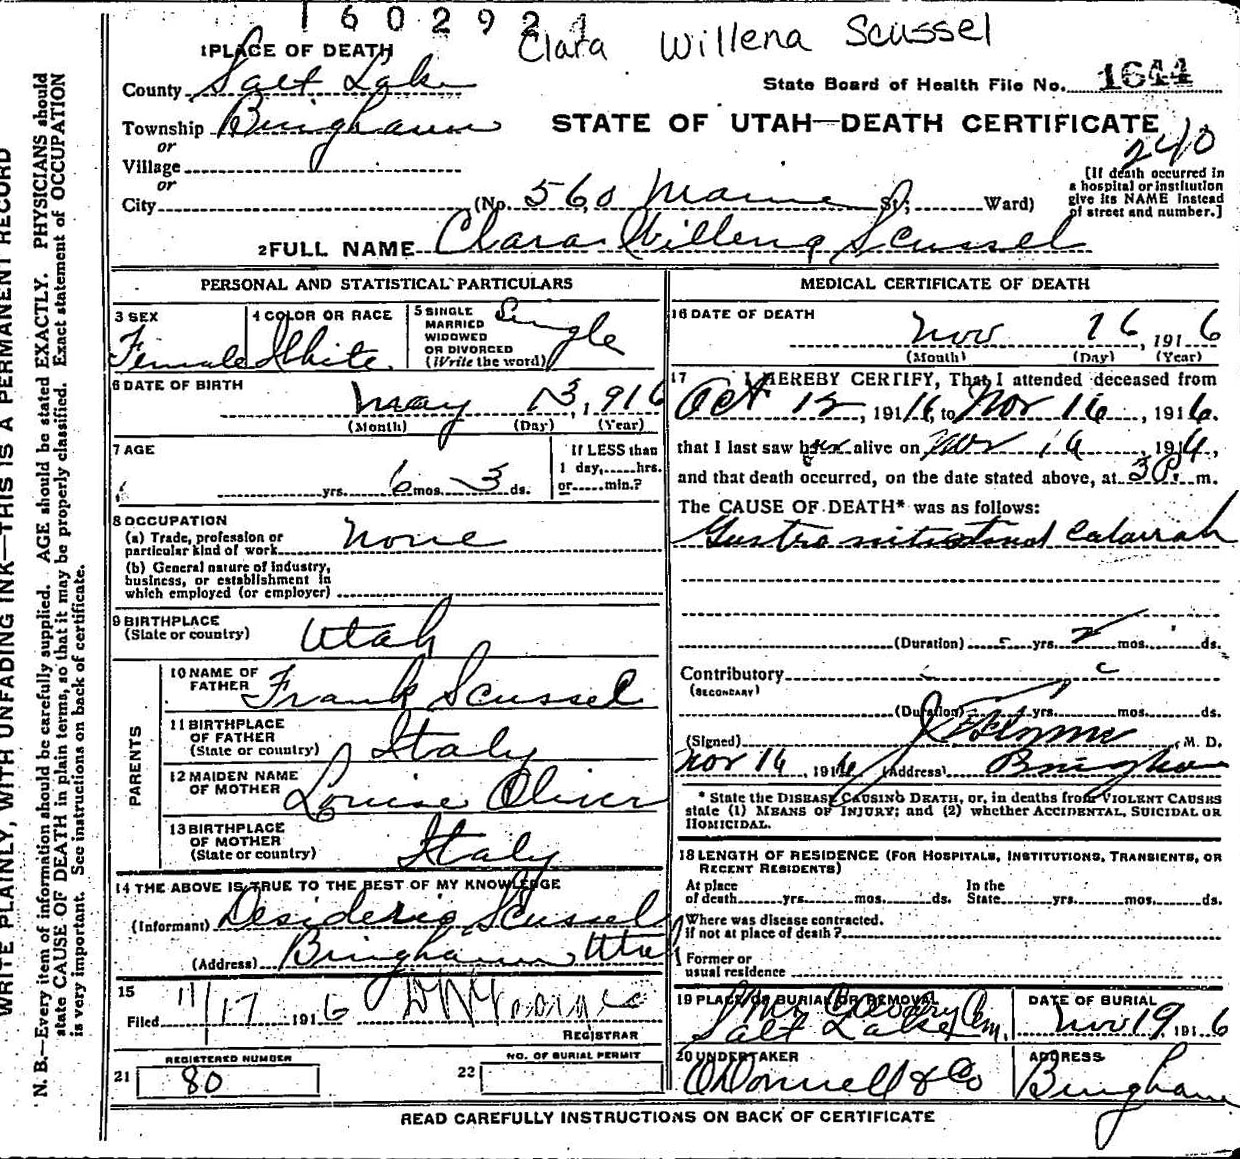 160292
Clara Willena Scussel
1 PLACE OF DEATH
County Salt Lake
State Board of Health File No. 1644
Township Bingham
STATE OF UTAH—DEATH CERTIFICATE
or
Village
240
or
[If death occurred in
a hospital or institution
give its NAME instead
of street and number.]
City (No. 560 Maine St; Ward)
2 FULL NAME Clara Willena Scussel
PERSONAL AND STATISTICAL PARTICULARS
3 SEX Female
4 COLOR OR RACE White
5 SINGLE
MARRIED
WIDOWED
OR DIVORCED
(Write the word) Single
6 DATE OF BIRTH
May 13, 1916
(Month) (Day) (Year)
7 AGE
yrs. 6 mos. 3 ds.
If LESS than
1 day, hrs.
or min.?
8 OCCUPATION
(a) Trade, profession or
particular kind of work None
(b) General nature of industry,
business, or establishment in
which employed (or employer)
9 BIRTHPLACE
(State or country) Utah
PARENTS
10 NAME OF
FATHER Frank Scussel
11 BIRTHPLACE
OF FATHER
(State or country) Italy
12 MAIDEN NAME
OF MOTHER Louise Oliver
13 BIRTHPLACE
OF MOTHER
(State or country) Italy
14 THE ABOVE IS TRUE TO THE BEST OF MY KNOWLEDGE
(Informant) Desiderio Scussel
(Address) Bingham Utah
15
Filed 11/17 1916
REGISTRAR
21 REGISTERED NUMBER
80
22 NO. OF BURIAL PERMIT
MEDICAL CERTIFICATE OF DEATH
16 DATE OF DEATH
Nov 16, 1916
(Month) (Day) (Year)
17 I HEREBY CERTIFY, That I attended deceased from
Oct 12, 1916, to Nov 16, 1916.
that I last saw her alive on Nov 16 1916,
and that death occurred, on the date stated above, at 3 P. m.
The CAUSE OF DEATH* was as follows:
Gastro intestinal Catarrah
(Duration) yrs. 2 mos. ds.
Contributory
(SECONDARY)
(Duration) yrs. mos. ds.
(Signed) M. D.
Nov 16, 1916 (Address) Bingham
* State the DISEASE CAUSING DEATH, or, in deaths from VIOLENT CAUSES
state (1) MEANS OF INJURY; and (2) whether ACCIDENTAL, SUICIDAL OR
HOMICIDAL.
18 LENGTH OF RESIDENCE (FOR HOSPITALS, INSTITUTIONS, TRANSIENTS, OR
RECENT RESIDENTS)
At place
of death yrs. mos. ds.
In the
State yrs. mos. ds.
Where was disease contracted.
if not at place of death?
Former or
usual residence
19 PLACE OF BURIAL OR REMOVAL
Mt. Calvary Cem.
Salt Lake
DATE OF BURIAL
Nov 19, 1916
20 UNDERTAKER
O'Donnell & Co
ADDRESS
Bingham
READ CAREFULLY INSTRUCTIONS ON BACK OF CERTIFICATE
WRITE PLAINLY, WITH UNFADING INK—THIS IS A PERMANENT RECORD
N. B.—Every item of information should be carefully supplied. AGE should be stated EXACTLY. PHYSICIANS should
state CAUSE OF DEATH in plain terms, so that it may be properly classified. Exact statement of OCCUPATION
is very important. See instructions on back of certificate.